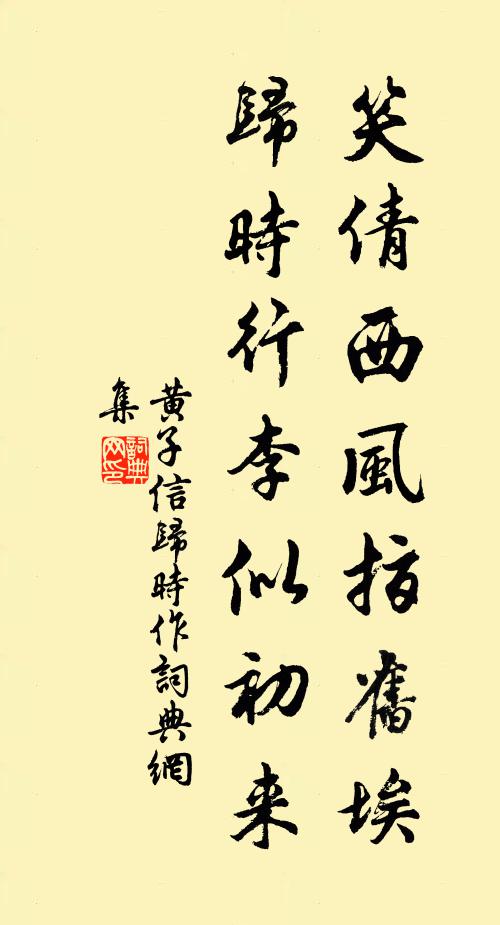 笑倩西風指舊埃
歸時行李似初来
黄子信歸時作詞典網
集
詞典网印